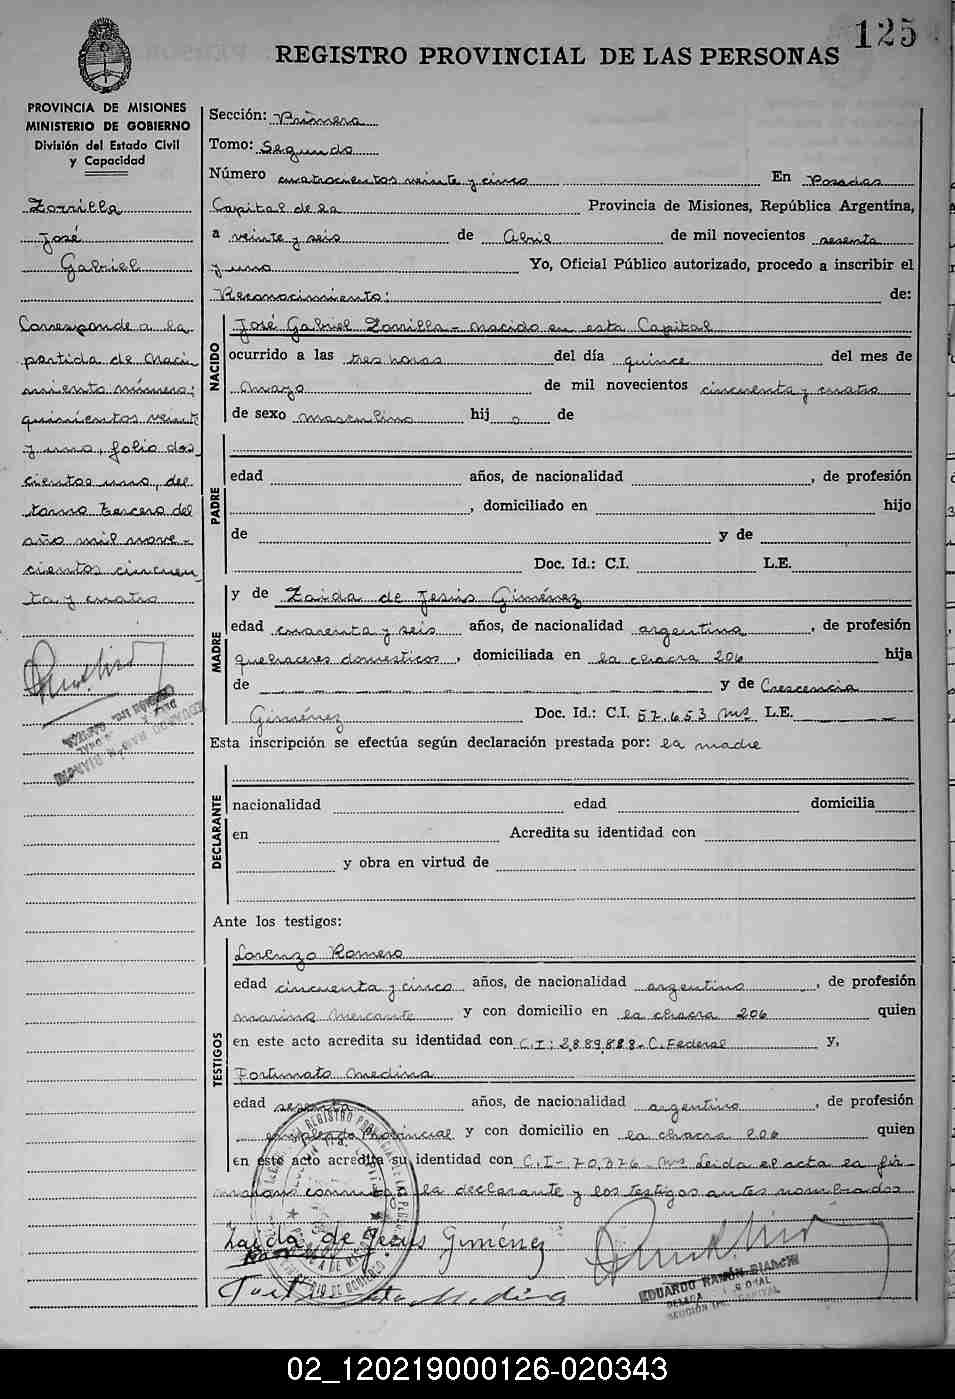 125
REGISTRO PROVINCIAL DE LAS PERSONAS
PROVINCIA DE MISIONES
MINISTERIO DE GOBIERNO
División del Estado Civil
y Capacidad
Zorrilla
José
Gabriel
Corresponde a la
partida de naci
miento número:
quinientos veinte
y uno, folio dos
cientos uno, del
tomo tercero del
año mil nove-
cientos cincuen
ta y cuatro
Sección: Primera
Tomo: Segundo
Número cuatrocientos veinte y cinco En Posadas
Capital de la Provincia de Misiones, República Argentina,
a veinte y seis de Abril de mil novecientos sesenta
y uno Yo, Oficial Público autorizado, procedo a inscribir el
Reconocimiento: de:
NACIDO
José Gabriel Zorrilla - nacido en esta Capital
ocurrido a las tres horas del día quince del mes de
Mayo de mil novecientos cincuenta y cuatro
de sexo masculino hij o de
PADRE
edad años, de nacionalidad , de profesión
, domiciliado en hijo
de y de
Doc. Id.: C.I. L.E.
MADRE
y de Zaida de Jesús Giménez
edad cuarenta y seis años, de nacionalidad argentina , de profesión
quehaceres domesticos , domiciliada en la chacra 206 hija
de y de Crescencia
Giménez Doc. Id.: C.I. 57.653 Mns L.E.
Esta inscripción se efectúa según declaración prestada por: la madre
DECLARANTE
nacionalidad edad domicilia
en Acredita su identidad con
y obra en virtud de
Ante los testigos:
TESTIGOS
Lorenzo Romero
edad cincuenta y cinco años, de nacionalidad argentino , de profesión
marino Mercante y con domicilio en la chacra 206 quien
en este acto acredita su identidad con C.I: 2.889.888 - C. Federal y,
Fortunato Medina
edad sesenta años, de nacionalidad argentino , de profesión
empleado Provincial y con domicilio en la chacra 206 quien
en este acto acredita su identidad con C.I - 70.376 - Mns Leida el acta la fir-
maron conmigo la declarante y los testigos antes nombrados
Zaida de Jesús Giménez
Fortunato Medina
EDUARDO RAMÓN BIANCHI
SECCIÓN 1ra. CAPITAL
02_120219000126-020343